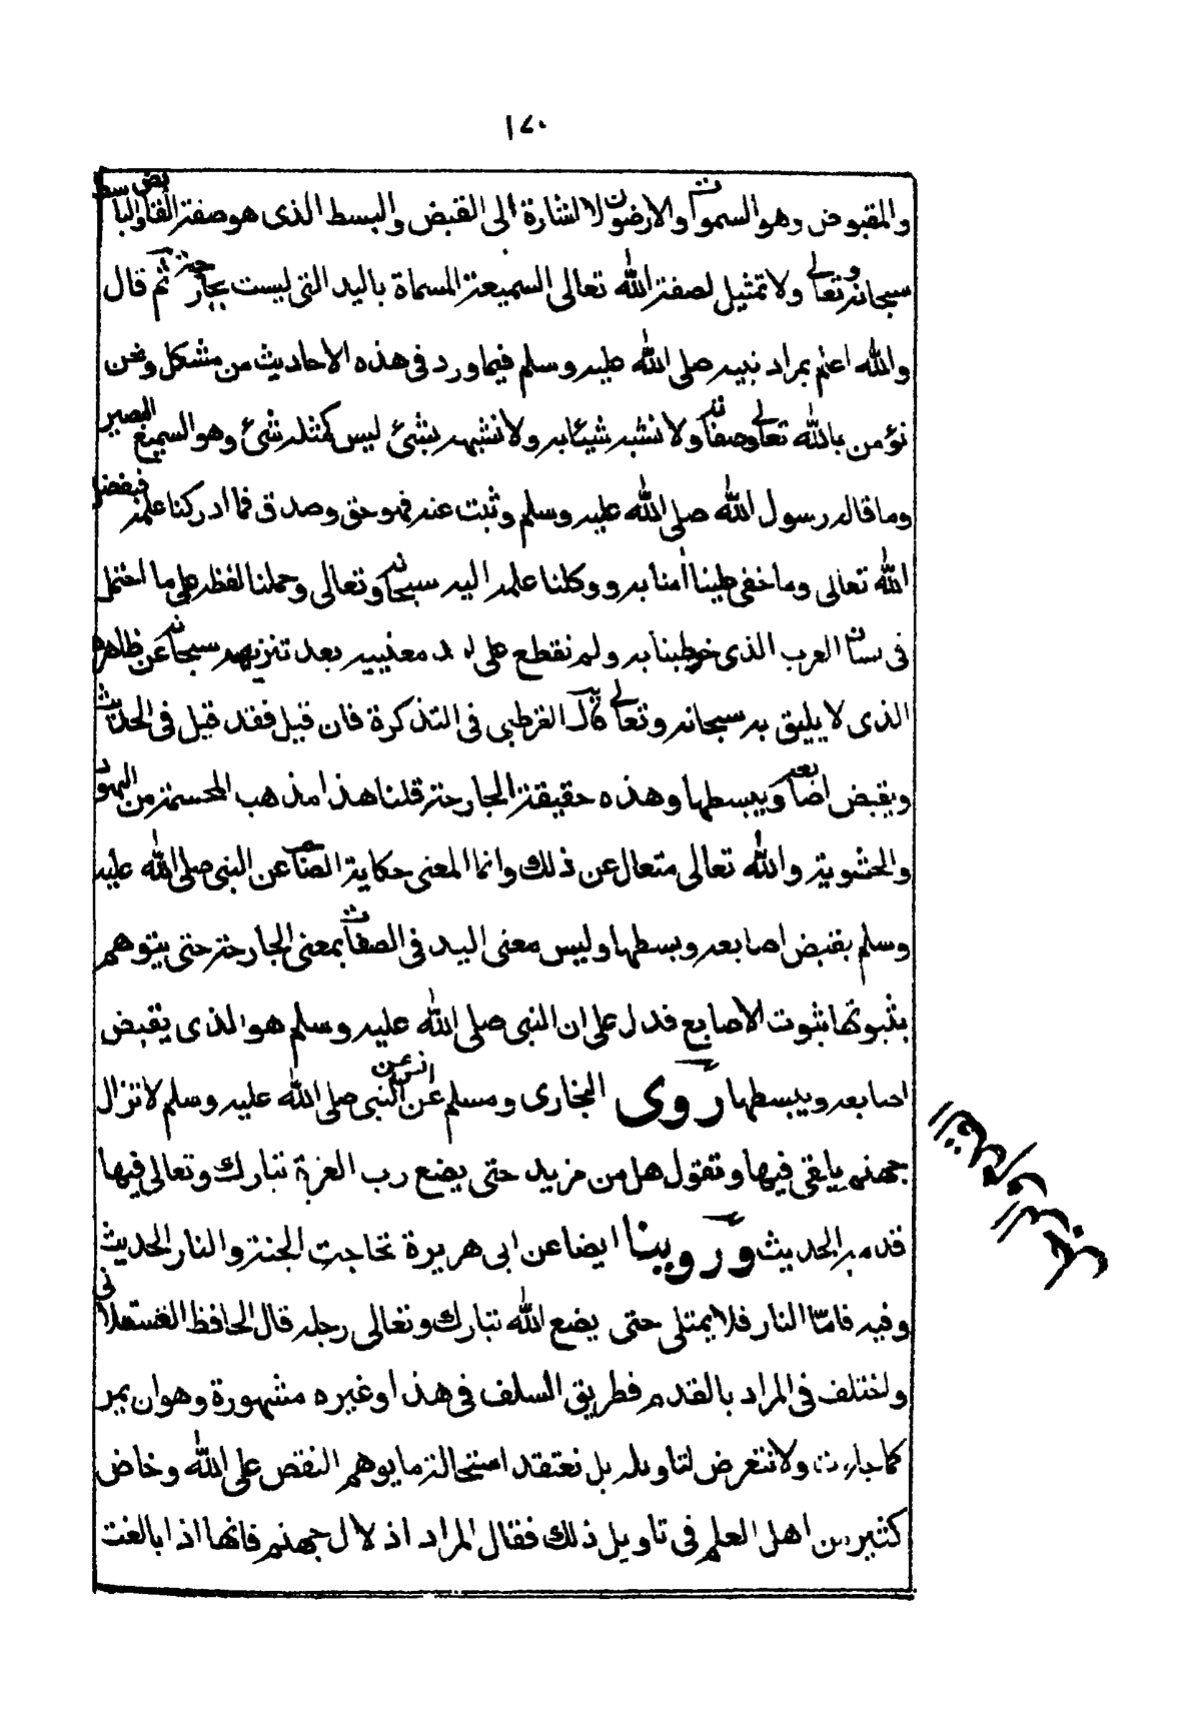 ١٧٠
والمقبوض وهو السموات والارضون لا اشارة الى القبض والبسط الذى هو صفة القابض والباسط
سبحانه وتعالى ولا تمثيل لصفة الله تعالى السميعة المسماة باليد التى ليست بجارحة ثم قال
والله اعلم بمراد نبيه صلى الله عليه وسلم فيما ورد فى هذه الاحاديث من مشكل ونحن
نؤمن بالله تعالى وصفاته ولا نشبه شيئا به ولا نشبهه بشئ ليس كمثله شئ وهو السميع البصير
وما قاله رسول الله صلى الله عليه وسلم وثبت عنه فهو حق وصدق فما ادركنا علمه فبفضل
الله تعالى وما خفى علينا أمنا به ووكلنا علمه اليه سبحانه وتعالى وحملنا لفظه على ما احتمل
فى لسان العرب الذى خوطبنا به ولم نقطع على معنييه بعد تنزيهه سبحانه عن ظاهره
الذى لا يليق به سبحانه وتعالى قال القرطبى فى التذكرة فان قيل فقد قيل فى الحديث
ويقبض اصابعه ويبسطها وهذه حقيقة الجارحة قلنا هذا مذهب المجسمة من اليهود
والحشوية والله تعالى متعال عن ذلك وانما المعنى حكاية الصحابى عن النبى صلى الله عليه
وسلم يقبض اصابعه ويبسطها وليس معنى اليد فى الصفات بمعنى الجارحة حتى يتوهم
بثبوتها ثبوت الاصابع فدل على ان النبى صلى الله عليه وسلم هو الذى يقبض
اصابعه ويبسطها روى البخارى ومسلم عن انس عن النبى صلى الله عليه وسلم لا تزال
جهنم يلقى فيها وتقول هل من مزيد حتى يضع رب العزة تبارك وتعالى فيها
قدمه الحديث وروينا ايضا عن ابى هريرة تحاجت الجنة والنار الحديث
وفيه فامّا النار فلا يمتلى حتى يضع الله تبارك وتعالى رجله قال الحافظ العسقلانى
واختلف فى المراد بالقدم فطريق السلف فى هذا وغيره مشهورة وهو ان يمر
كما جاءت ولا نتعرض لتاويله بل نعتقد استحالة ما يوهم النقص على الله وخاض
كثير من اهل العلم فى تاويل ذلك فقال المراد اذلال جهنم فانها اذا بالغت